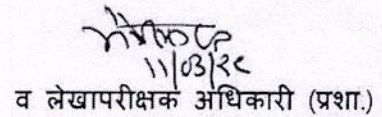 11/03/२८
व लेखापरीक्षक अधिकारी (प्रशा.)